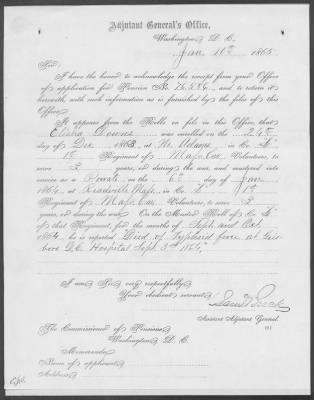 Adjutant General's Office,
Washington, D. C.
Jan 10th 1865
Sir:
I have the honor to acknowledge the receipt from your Office
of application for Pension No. 76,586, and to return it
herewith, with such information as is furnished by the files of this
Office.
It appears from the Rolls on file in this Office, that
Elisha Downs was enrolled on the 24th
day of Dec 1863, at No. Adams in Co.
1st Regiment of Mass Cav Volunteers, to
serve 3 years, or during the war, and mustered into
service as a Private on the 6th day of Jan
1864, at Readville Mass, in Co. 1st
Regiment of Mass Cav Volunteers, to serve 3
years, or during the war. On the Muster Roll of Co.
of that Regiment, for the months of Sept and Oct,
1864, he is reported "Died of Typhoid fever at Gies
boro D.C. Hospital Sept 3rd 1864,"
I am Sir, very respectfully,
Your obedient servant,
Saml Breck
Assistant Adjutant General.
The Commissioner of Pensions,
Washington, D. C.
Memoranda:
Name of applicant,
Address,